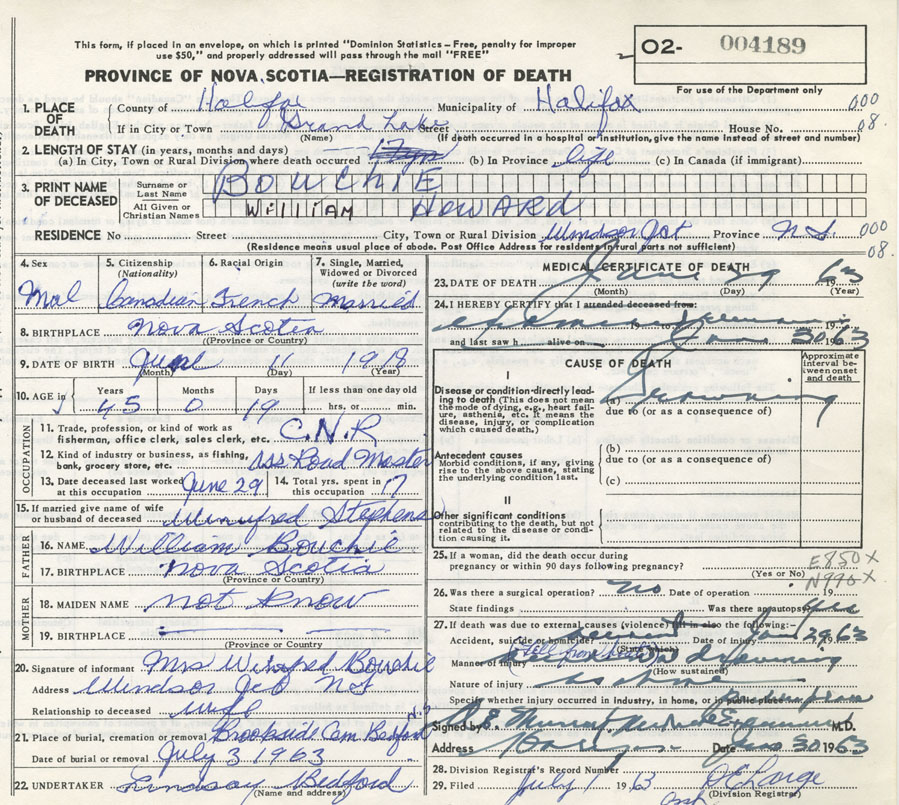 This form, if placed in an envelope, on which is printed "Dominion Statistics – Free, penalty for improper
use $50," and properly addressed will pass through the mail "FREE"
O2- 004189
For use of the Department only
PROVINCE OF NOVA SCOTIA—REGISTRATION OF DEATH
1. PLACE OF DEATH County of Halifax Municipality of Halifax 000
If in City or Town Grand Lake Street House No. 08.
(Name) (If death occurred in a hospital or institution, give name instead of street and number)
2. LENGTH OF STAY (in years, months and days)
(a) In City, Town or Rural Division where death occurred (b) In Province life (c) In Canada (if immigrant)
3. PRINT NAME OF DECEASED Surname or Last Name BOUCHIE
All Given or Christian Names WILLIAM HOWARD
RESIDENCE No Street City, Town or Rural Division Windsor Jct Province N.S. 000
(Residence means usual place of abode. Post Office Address for residents in rural parts not sufficient) 08.
4. Sex 5. Citizenship (Nationality) 6. Racial Origin 7. Single, Married, Widowed or Divorced (write the word)
Mal Canadian French Married
8. BIRTHPLACE Nova Scotia
(Province or Country)
9. DATE OF BIRTH June 11 1918
(Month) (Day) (Year)
10. AGE in Years Months Days If less than one day old
45 0 19 hrs. or min.
OCCUPATION
11. Trade, profession, or kind of work as fisherman, office clerk, sales clerk, etc. C.N.R
12. Kind of industry or business, as fishing, bank, grocery store, etc. Ass Road Master
13. Date deceased last worked at this occupation June 29 14. Total yrs. spent in this occupation 17
15. If married give name of wife or husband of deceased Winifred Stephens
FATHER
16. NAME William Bouchie
17. BIRTHPLACE Nova Scotia
(Province or Country)
MOTHER
18. MAIDEN NAME not know
19. BIRTHPLACE
(Province or Country)
20. Signature of informant Mrs Winifred Bouchie
Address Windsor Jct
Relationship to deceased wife
21. Place of burial, cremation or removal Brookside Cem Bedford N.S
Date of burial or removal July 3 1963
22. UNDERTAKER Lindsay Bedford
(Name and address)
MEDICAL CERTIFICATE OF DEATH
23. DATE OF DEATH June 29 1963
(Month) (Day) (Year)
24. I HEREBY CERTIFY that I attended deceased from:
19 to 19
and last saw h alive on June 30 1963
CAUSE OF DEATH
Approximate interval between onset and death
I
Disease or condition directly leading to death (This does not mean the mode of dying, e.g., heart failure, asthenia, etc. It means the disease, injury, or complication which caused death.)
(a) Drowning
due to (or as a consequence of)
Antecedent causes
Morbid conditions, if any, giving rise to the above cause, stating the underlying condition last.
(b)
due to (or as a consequence of)
(c)
II
Other significant conditions
contributing to the death, but not related to the disease or condition causing it.
25. If a woman, did the death occur during pregnancy or within 90 days following pregnancy? E850X
(Yes or No) N990X
26. Was there a surgical operation? no Date of operation 19
State findings Was there an autopsy? yes
27. If death was due to external causes (violence) fill in also the following:–
Accident, suicide or homicide? accident Date of injury June 29 1963
(State which)
Manner of injury (fell from boat) drowning
(How sustained)
Nature of injury
Specify whether injury occurred in industry, in home, or in public place
Signed by Medical Examiner M.D.
Address Date June 30 1963
28. Division Registrar's Record Number
29. Filed July 1 1963
(Division Registrar)